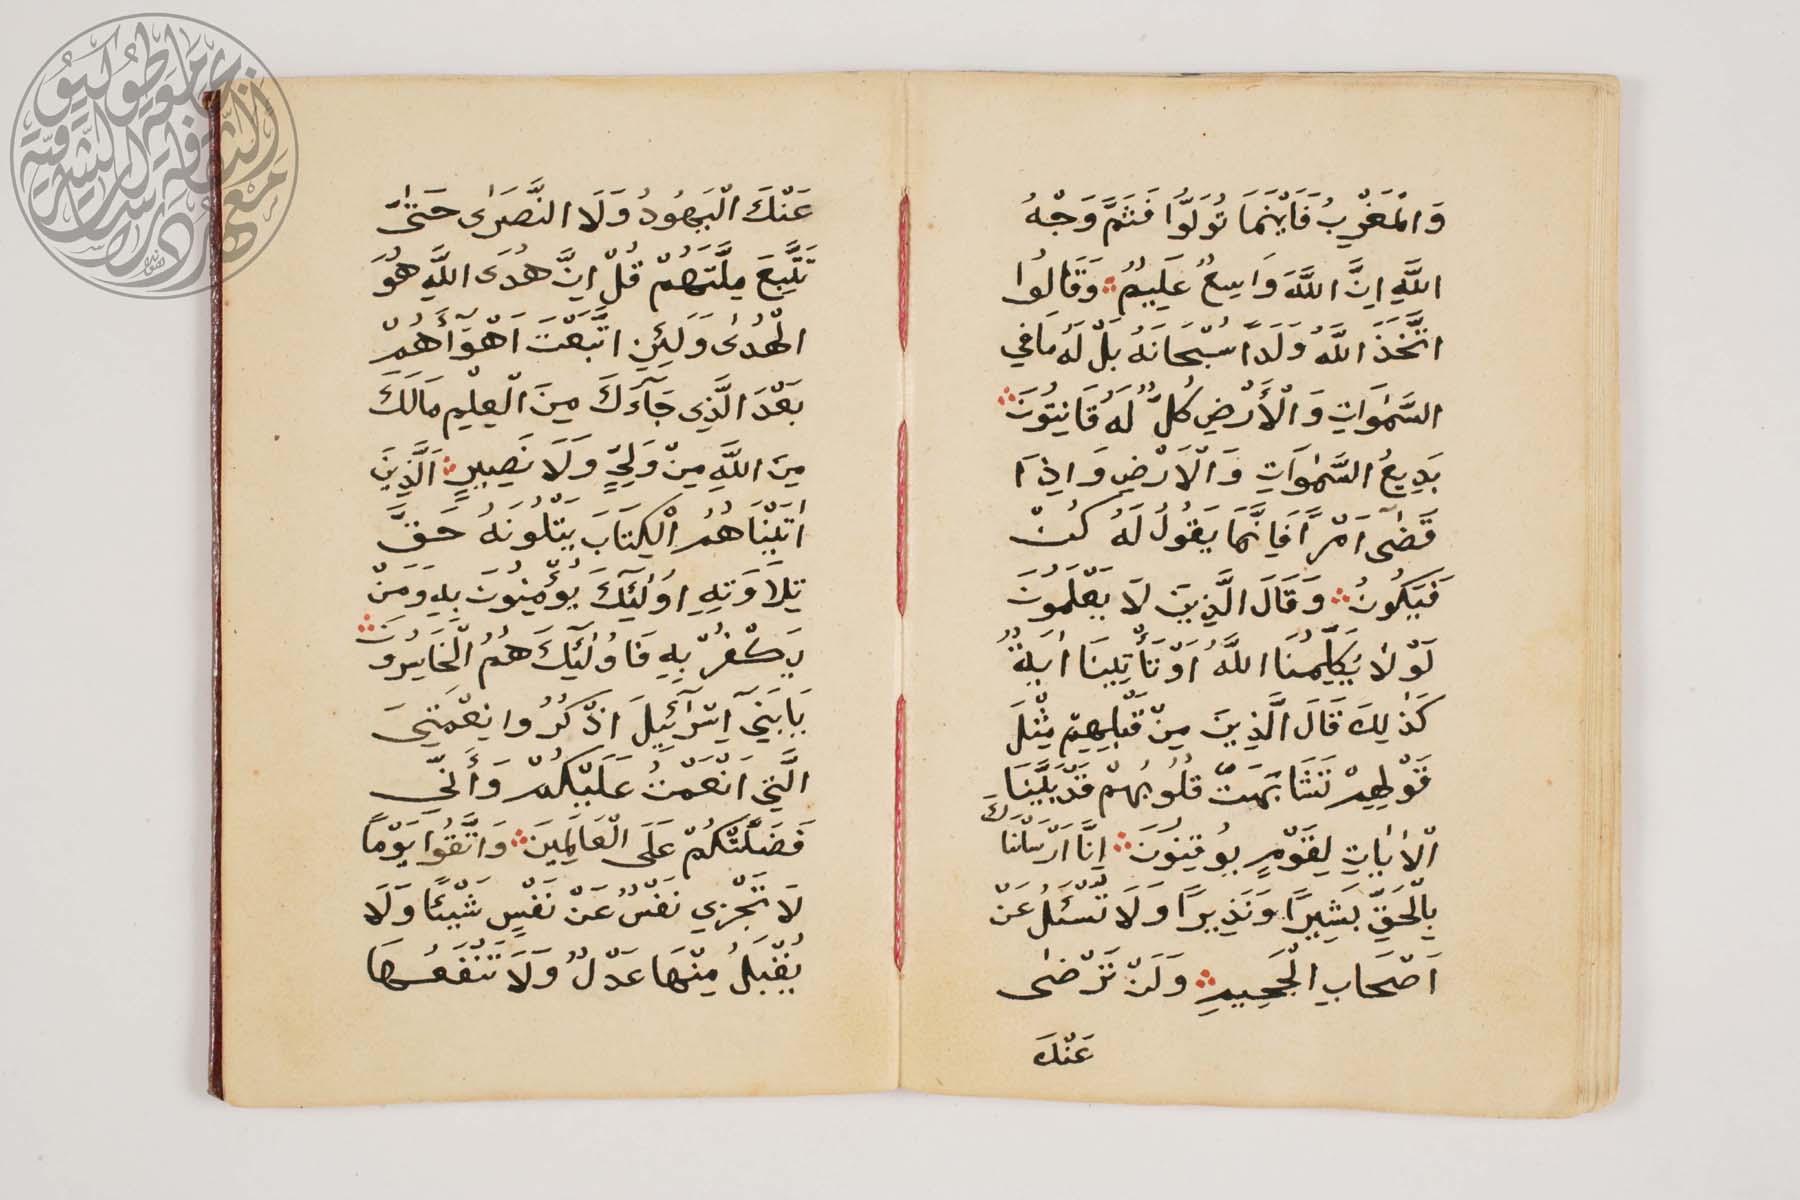 وَالْمَغْرِبُ فَاَيْنَمَا تُوَلُّوْا فَثَمَّ وَجْهُ
اللَّهِ اِنَّ اللَّهَ وَاسِعٌ عَلِيمٌ وَقَالُوا
اتَّخَذَ اللَّهُ وَلَدًا سُبْحَانَهُ بَلْ لَهُ مَا فِي
السَّمٰوَاتِ وَالْأَرْضِ كُلٌّ لَهُ قَانِتُونَ
بَدِيعُ السَّمٰوَاتِ وَالْاَرْضِ وَاِذَا
قَضٰى اَمْرًا فَاِنَّمَا يَقُولُ لَهُ كُنْ
فَيَكُونُ وَقَالَ الَّذِينَ لَا يَعْلَمُونَ
لَوْلَا يُكَلِّمُنَا اللَّهُ اَوْ تَأْتِينَا اٰيَةٌ
كَذٰلِكَ قَالَ الَّذِينَ مِنْ قَبْلِهِمْ مِثْلَ
قَوْلِهِمْ تَشَابَهَتْ قُلُوبُهُمْ قَدْ بَيَّنَّا
الْاٰيَاتِ لِقَوْمٍ يُوقِنُونَ اِنَّا اَرْسَلْنَاكَ
بِالْحَقِّ بَشِيرًا وَنَذِيرًا وَلَا تُسْئَلُ عَنْ
اَصْحَابِ الْجَحِيمِ وَلَنْ تَرْضٰى
عَنْكَ
عَنْكَ الْيَهُودُ وَلَا النَّصَرٰى حَتّٰى
تَتَّبِعَ مِلَّتَهُمْ قُلْ اِنَّ هُدَى اللَّهِ هُوَ
الْهُدٰى وَلَئِنِ اتَّبَعْتَ اَهْوَآءَهُمْ
بَعْدَ الَّذِى جَآءَكَ مِنَ الْعِلْمِ مَا لَكَ
مِنَ اللَّهِ مِنْ وَلِيٍّ وَلَا نَصِيرٍ اَلَّذِينَ
اٰتَيْنَاهُمُ الْكِتَابَ يَتْلُونَهُ حَقَّ
تِلَاوَتِهِ اُولٰئِكَ يُؤْمِنُونَ بِهِ وَمَنْ
يَكْفُرْ بِهِ فَاُولٰئِكَ هُمُ الْخَاسِرُونَ
يَابَنِىٓ اِسْرَآئِيلَ اذْكُرُوا نِعْمَتِىَ
الَّتِى اَنْعَمْتُ عَلَيْكُمْ وَأَنِّى
فَضَّلْتُكُمْ عَلَى الْعَالَمِينَ وَاتَّقُوا يَوْمًا
لَا تَجْزِي نَفْسٌ عَنْ نَفْسٍ شَيْئًا وَلَا
يُقْبَلُ مِنْهَا عَدْلٌ وَلَا تَنْفَعُهَا